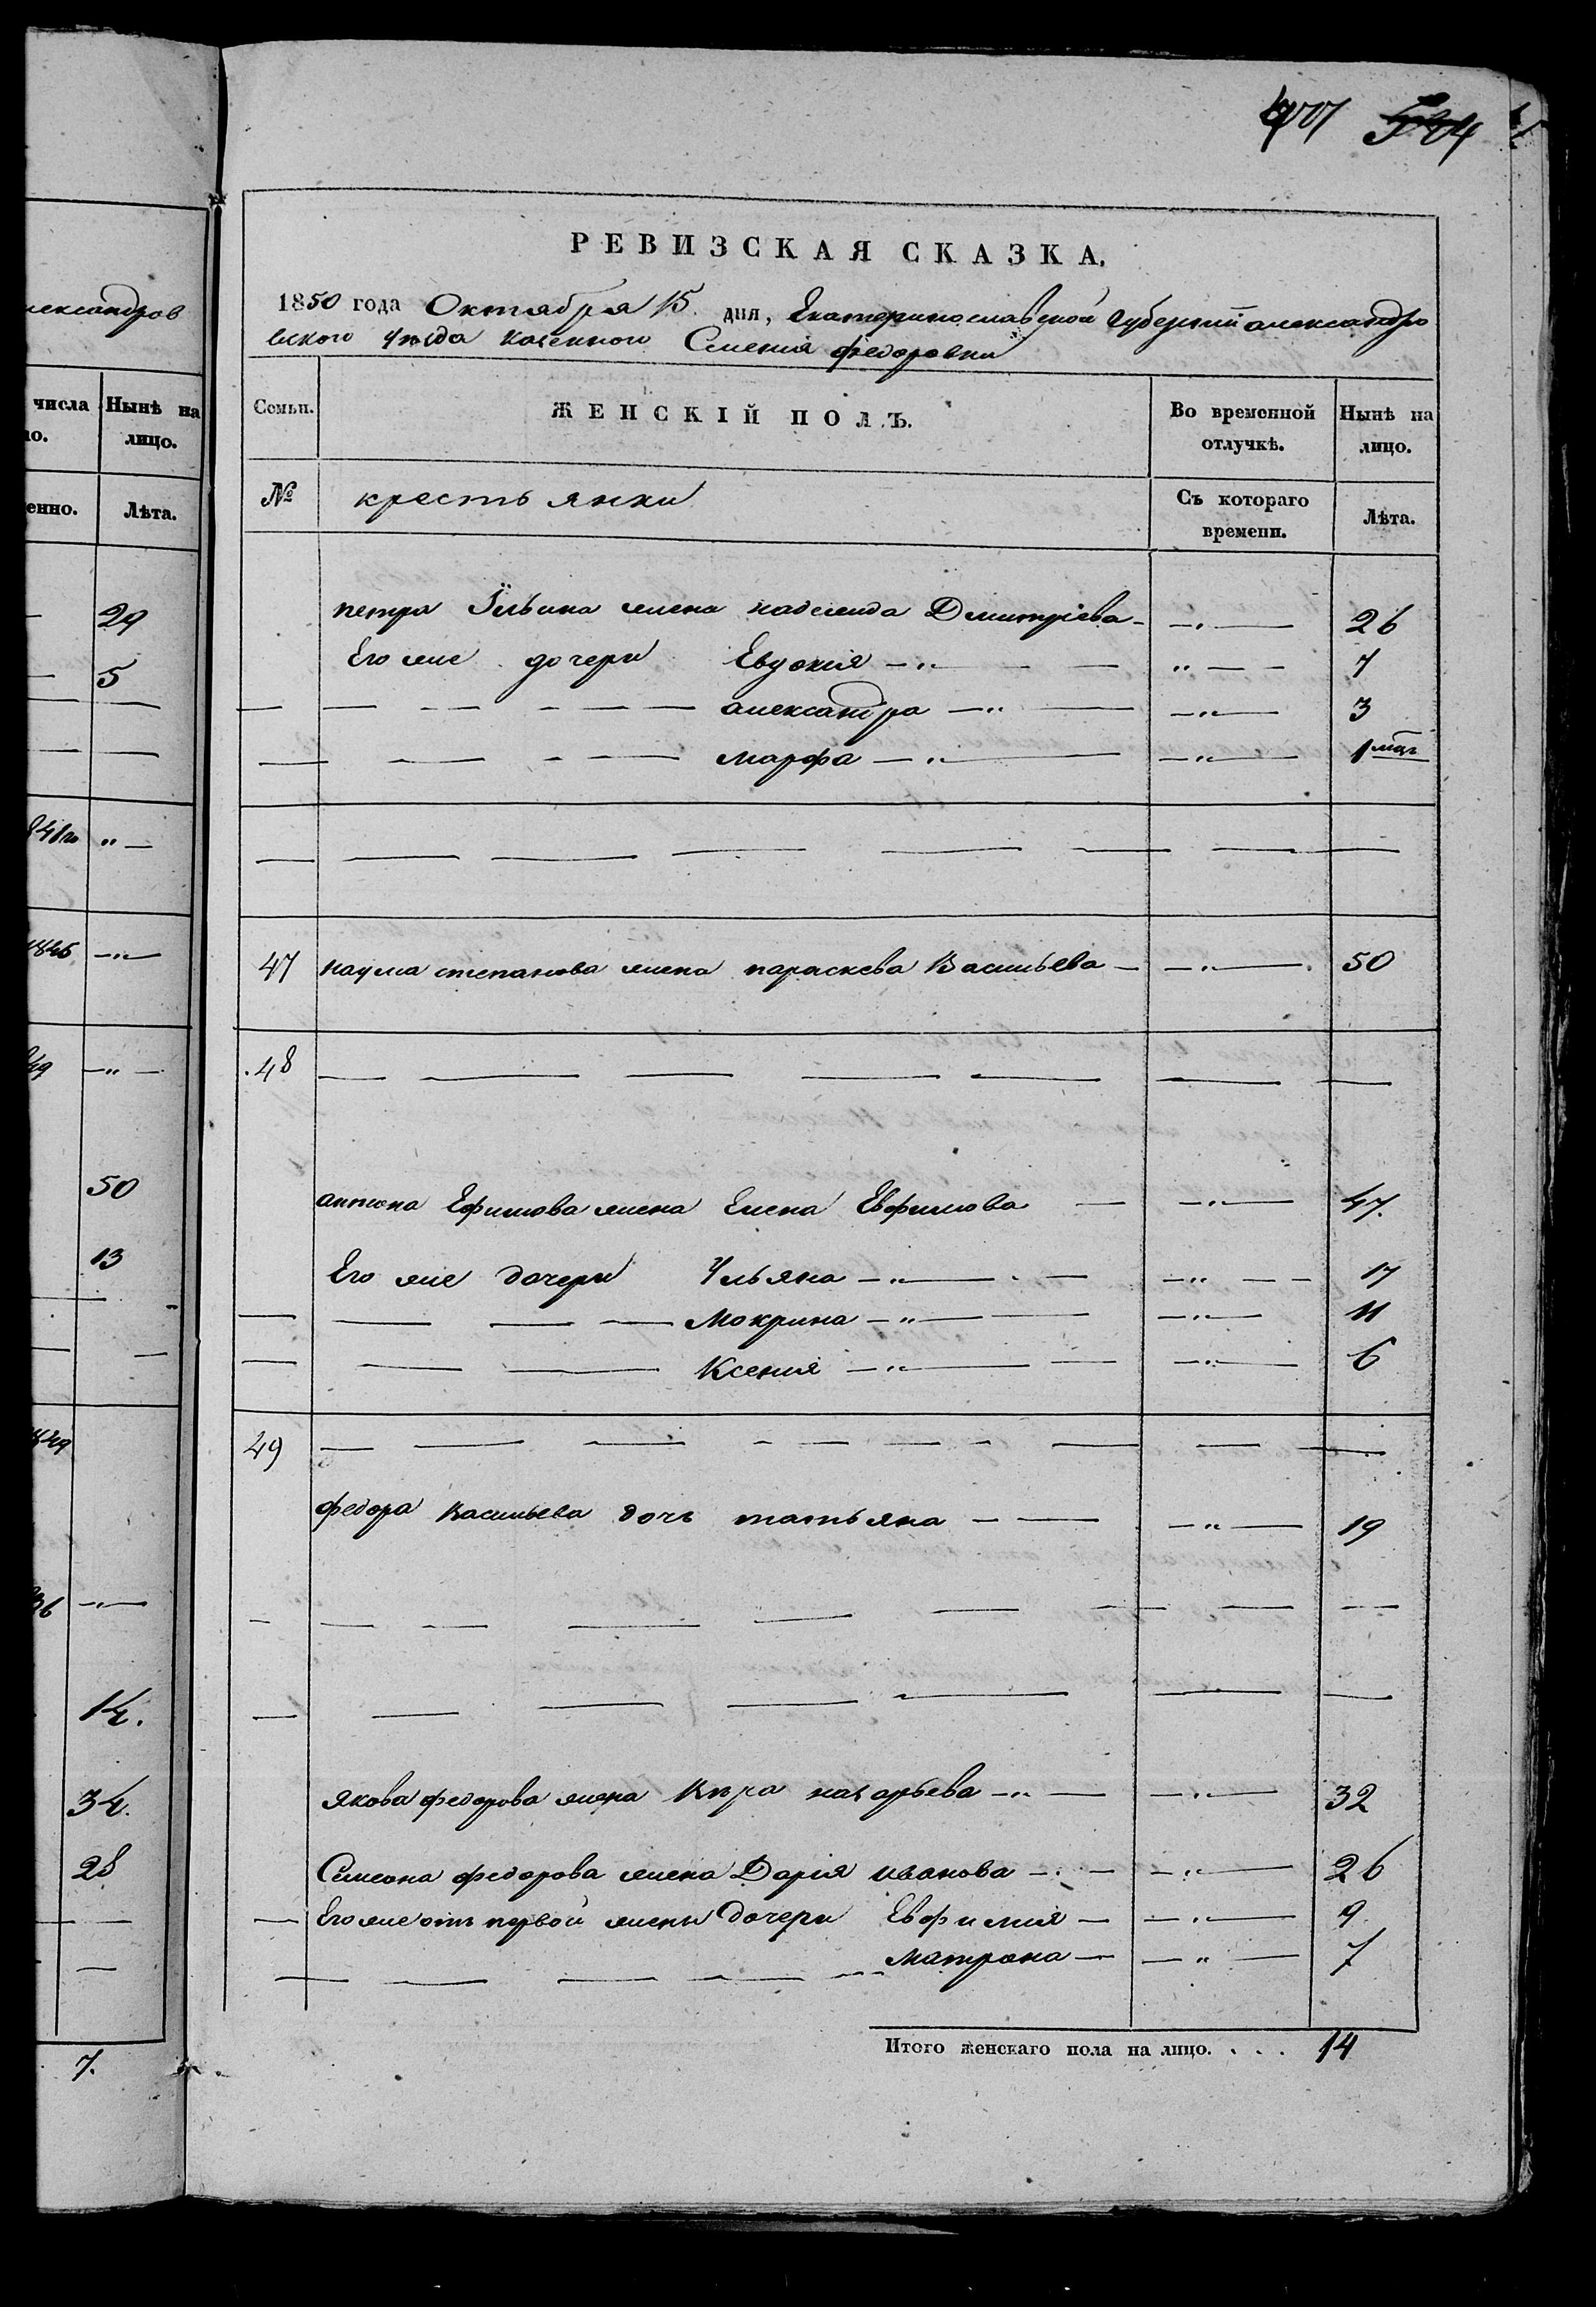 александров
числа Нынѣ на
лицо.
Лѣта.
29
5
50
13
14.
34.
28
7.
504
РЕВИЗСКАЯ СКАЗКА.
1850 года Октября 15. дня, Екатеринославской Губерніи александро
вского Уѣзда казенного Селенія федоровки
Семьи. ЖЕНСКІЙ ПОЛЪ. Во временной отлучкѣ. Нынѣ на лицо.
№ крестьянки Съ котораго времени. Лѣта.
петра Ильина жена надежда Дмитріева 26
Его же дочери Евдокия 7
александра 3
марфа 1 мцъ
47 наума степанова жена параскева Васильева 50
48
антона Ефимова жена Елена Евфимова 47.
Его же дочери Ульяна 17
Мокрина 11
Ксения 6
49
федора Васильева дочь татьяна 19
якова федорова жена Вѣра назарьева 32
Симеона федорова жена Дарія иванова 26
Его же отъ первой жены дочери Евфимия 9
матрона 7
Итого женскаго пола на лицо. . . . 14